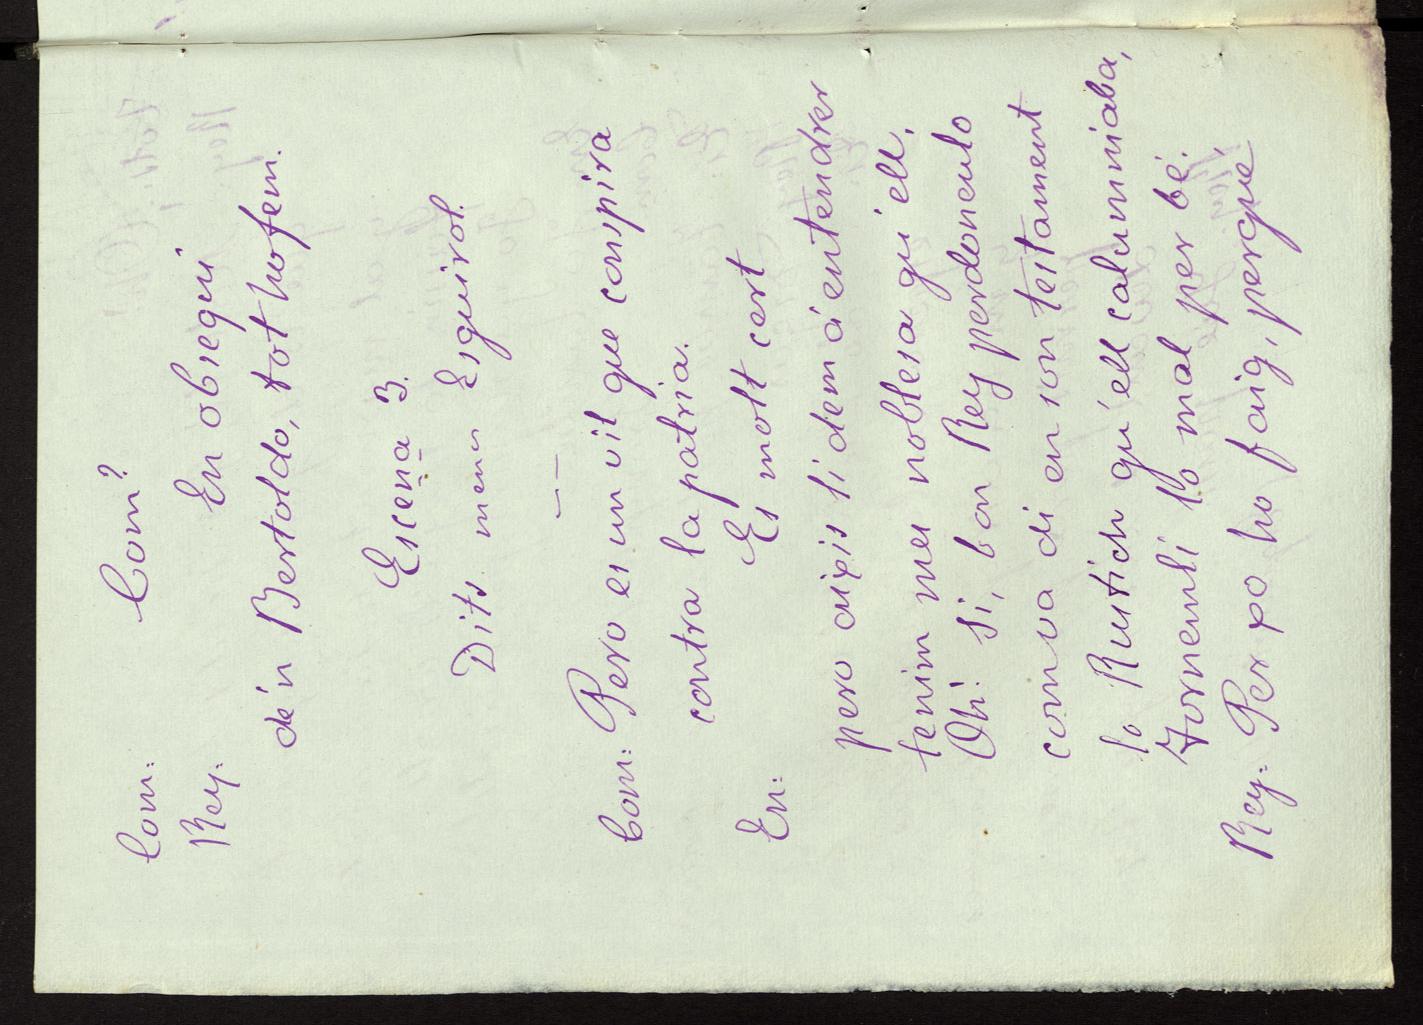 Com: Com?
Rey: En obsequi
de'n Bertoldo, tot ho fem.
Escena 3.
Dits menos Esquirol.
Com: Pero es un vil que conspira
contra la patria.
En: Es molt cert
pero aixis li dem á entendrer
tenim mes noblesa qu'ell,
Oh! Si, bon Rey perdoneulo
com va di en son testament
lo Rustich qu'ell calumniaba,
Torneuli lo mal per bé.
Rey: Per xo ho faig, perque